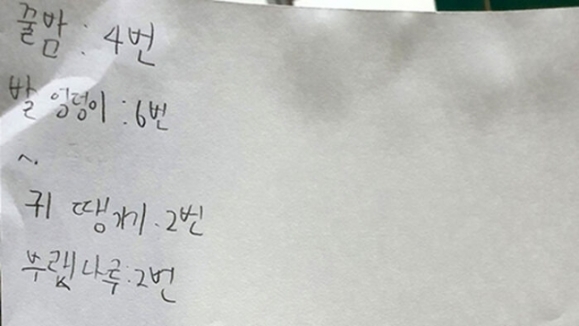 꿀밤 : 4번
발 엉덩이 : 6번
~.
귀 땡기기 : 2번
나루 : 2번